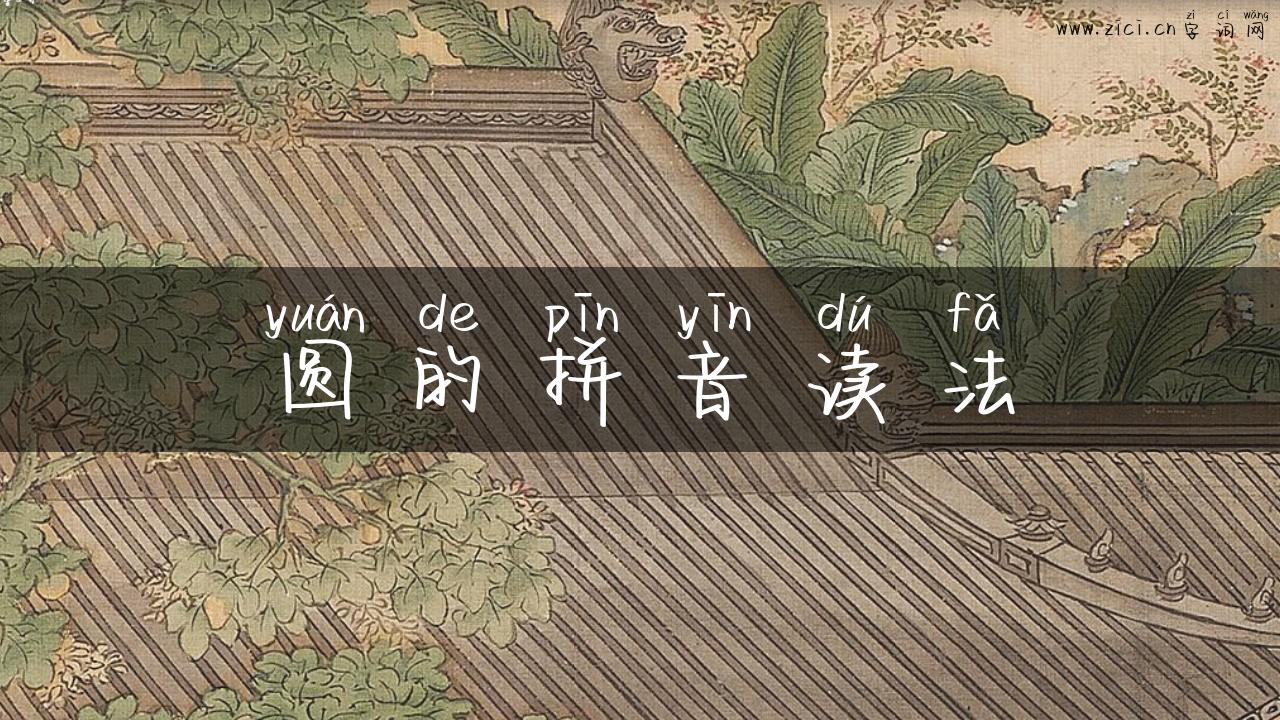 zì cí wǎng
www.zici.cn 字词网
yuán de pīn yīn dú fǎ
圆的拼音读法